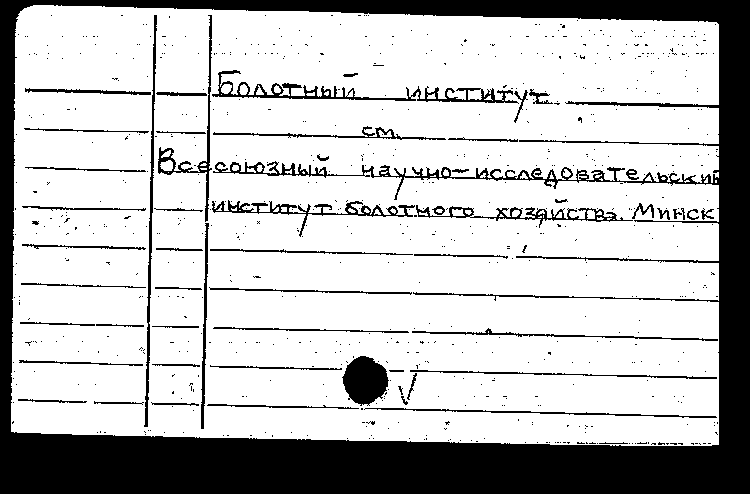 Болотный институт
см.
Всесоюзный научно-исследовательский
институт болотного хозяйства. Минск